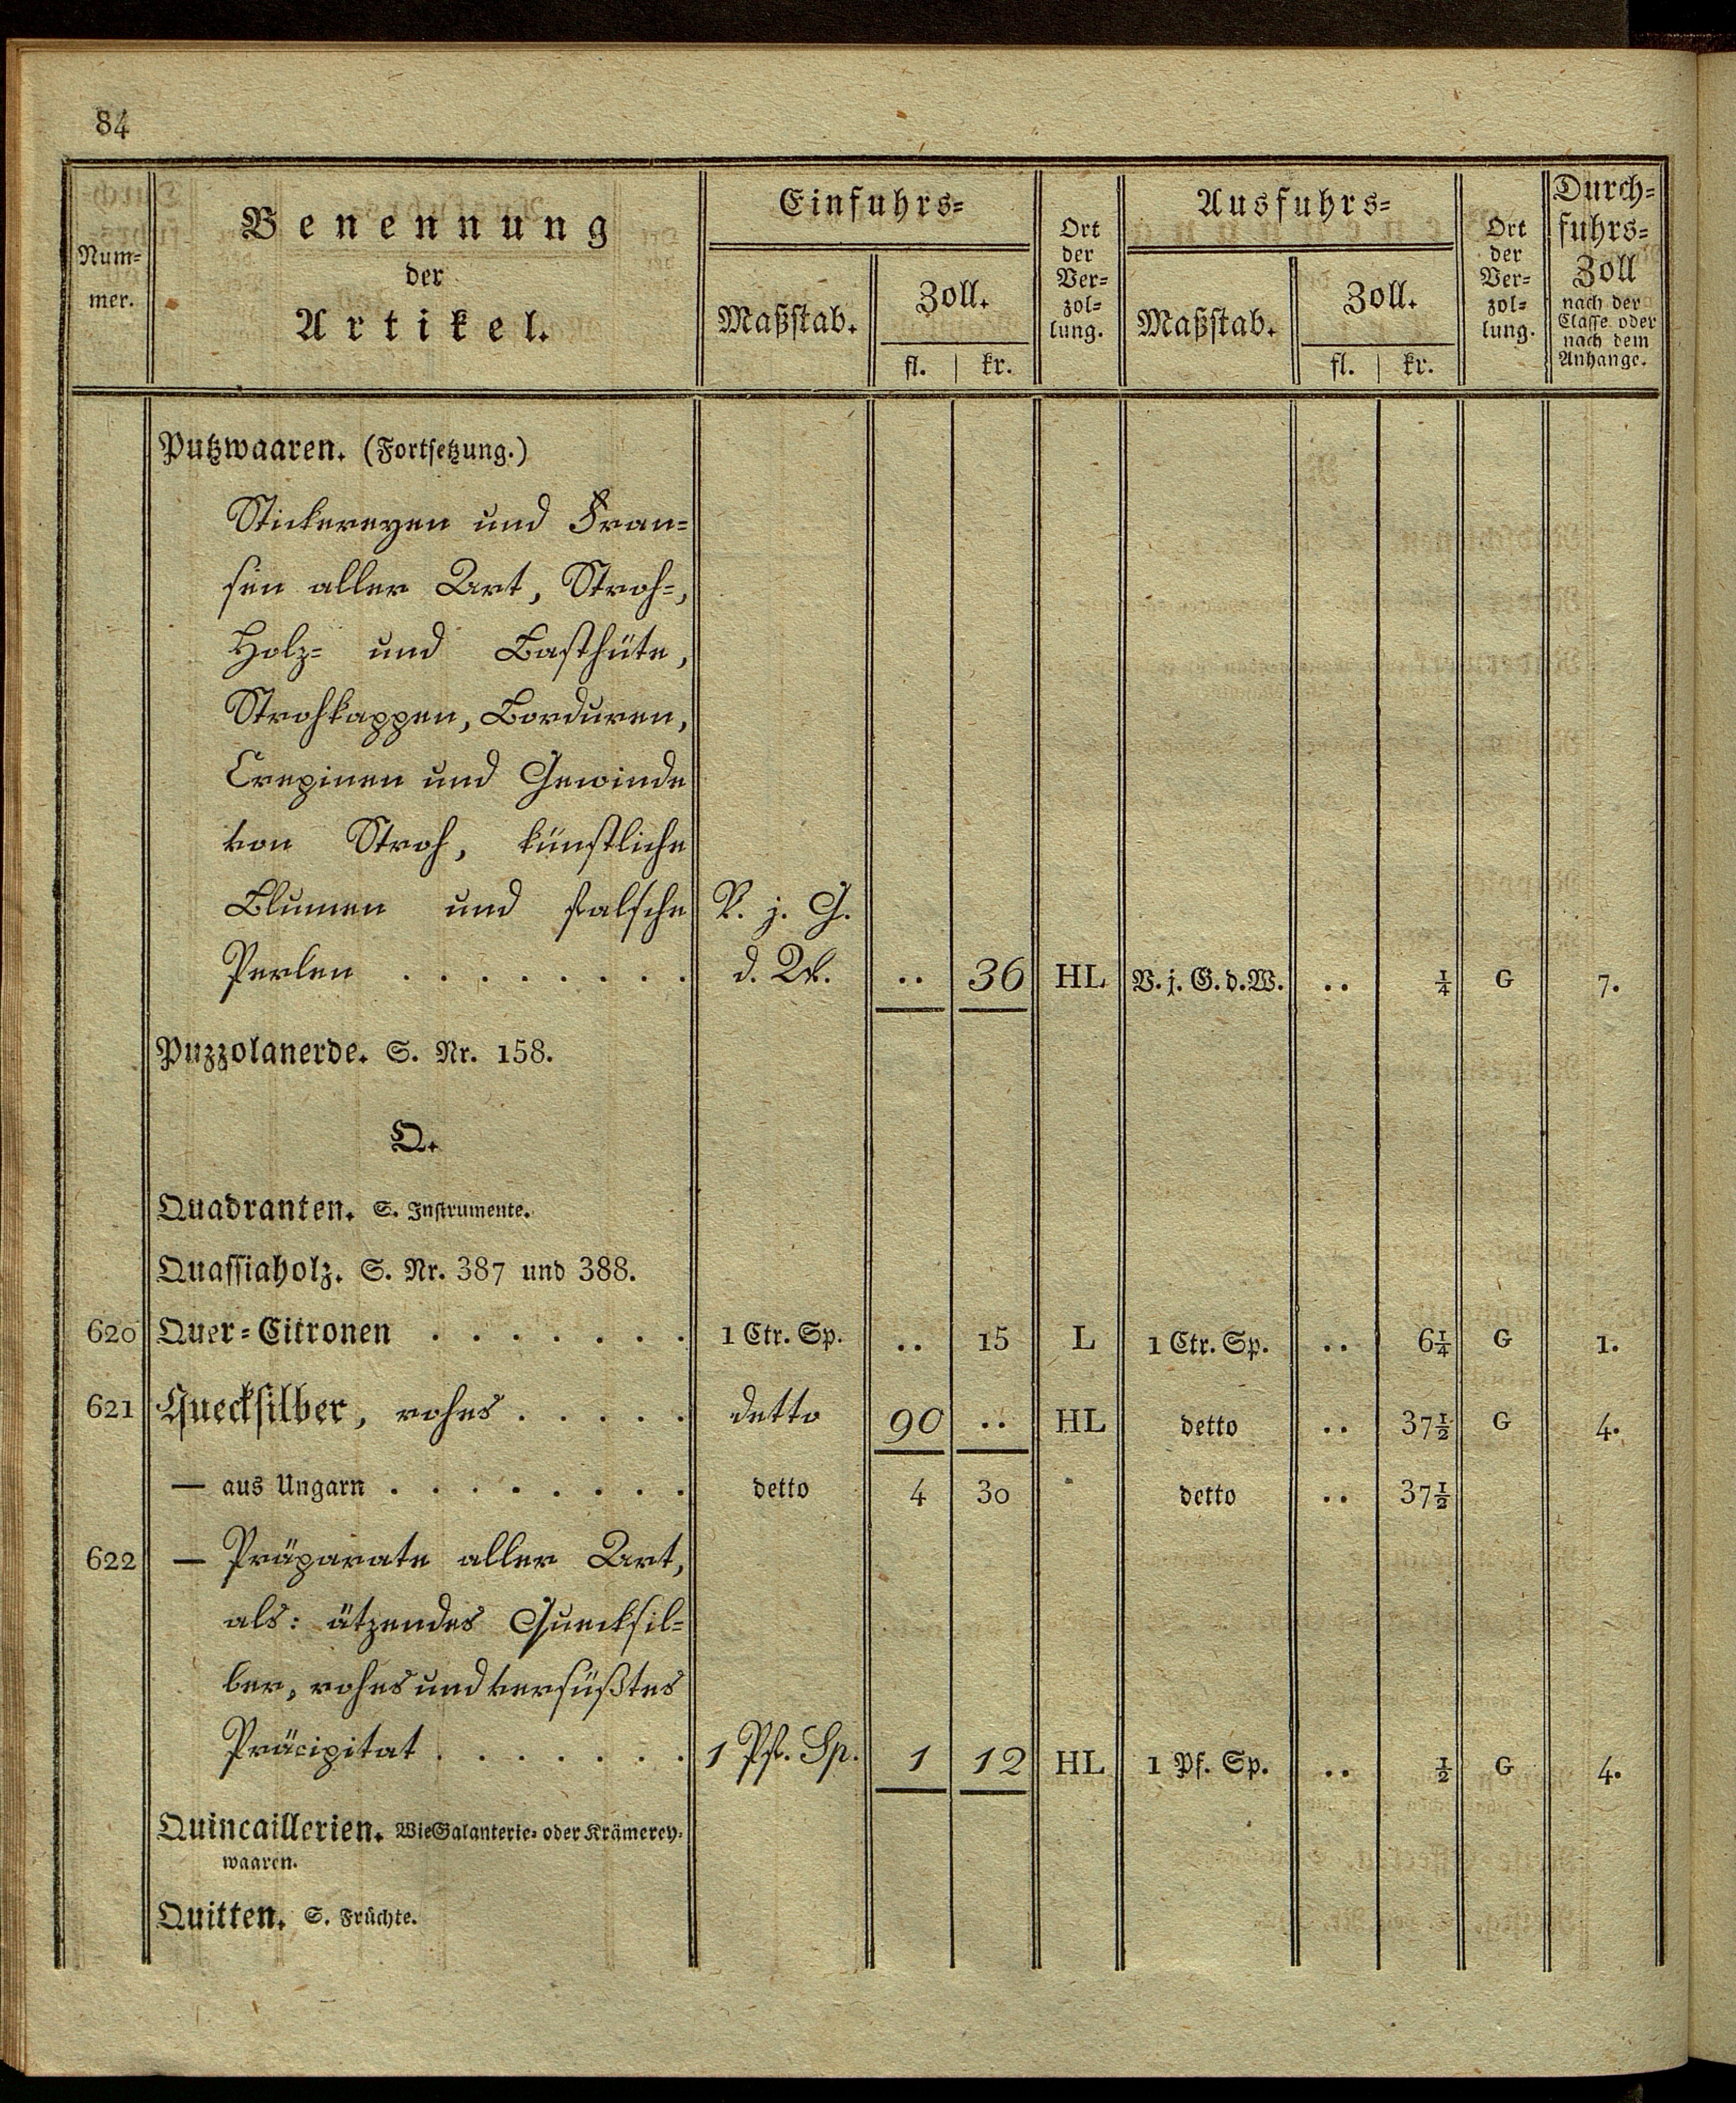 84
Num=
mer.
Benennung
der
Artikel.
Einfuhrs=
Maßstab.
Zoll.
fl. kr.
Ort
der
Ver=
zol=
lung.
Ausfuhrs=
Maßstab.
Zoll.
fl. kr.
Ort
der
Ver=
zol=
lung.
Durch=
fuhrs=
Zoll
nach der
Classe oder
nach dem
Anhange.
Putzwaaren. (Fortsetzung.)
Stickereyen und Fran=
sen aller Art, Stroh=,
Holz= und Basthüte,
Strohkappen, Borduren,
Crepinen und Gewinde
von Stroh, künstliche
Blumen und falsche V. j. G.
Perlen . . . . . . . . d. W. .. 36 HL V. j. G. d. W. .. ¼ G 7.
Puzzolanerde. S. Nr. 158.
Q.
Quadranten. S. Instrumente.
Quassiaholz. S. Nr. 387 und 388.
620 Quer=Citronen . . . . . . . 1 Ctr. Sp. .. 15 L 1 Ctr. Sp. .. 6¼ G 1.
621 Quecksilber, rohes . . . . . detto 90 .. HL detto .. 37½ G 4.
— aus Ungarn . . . . . . . . detto 4 30 detto .. 37½
622 — Präparate aller Art,
als: ätzendes Quecksil=
ber, rohes und versüßtes
Präcipitat . . . . . . . 1 Pf. Sp. 1 12 HL 1 Pf. Sp. .. ½ G 4.
Quincaillerien. Wie Galanterie= oder Krämerey=
waaren.
Quitten. S. Früchte.